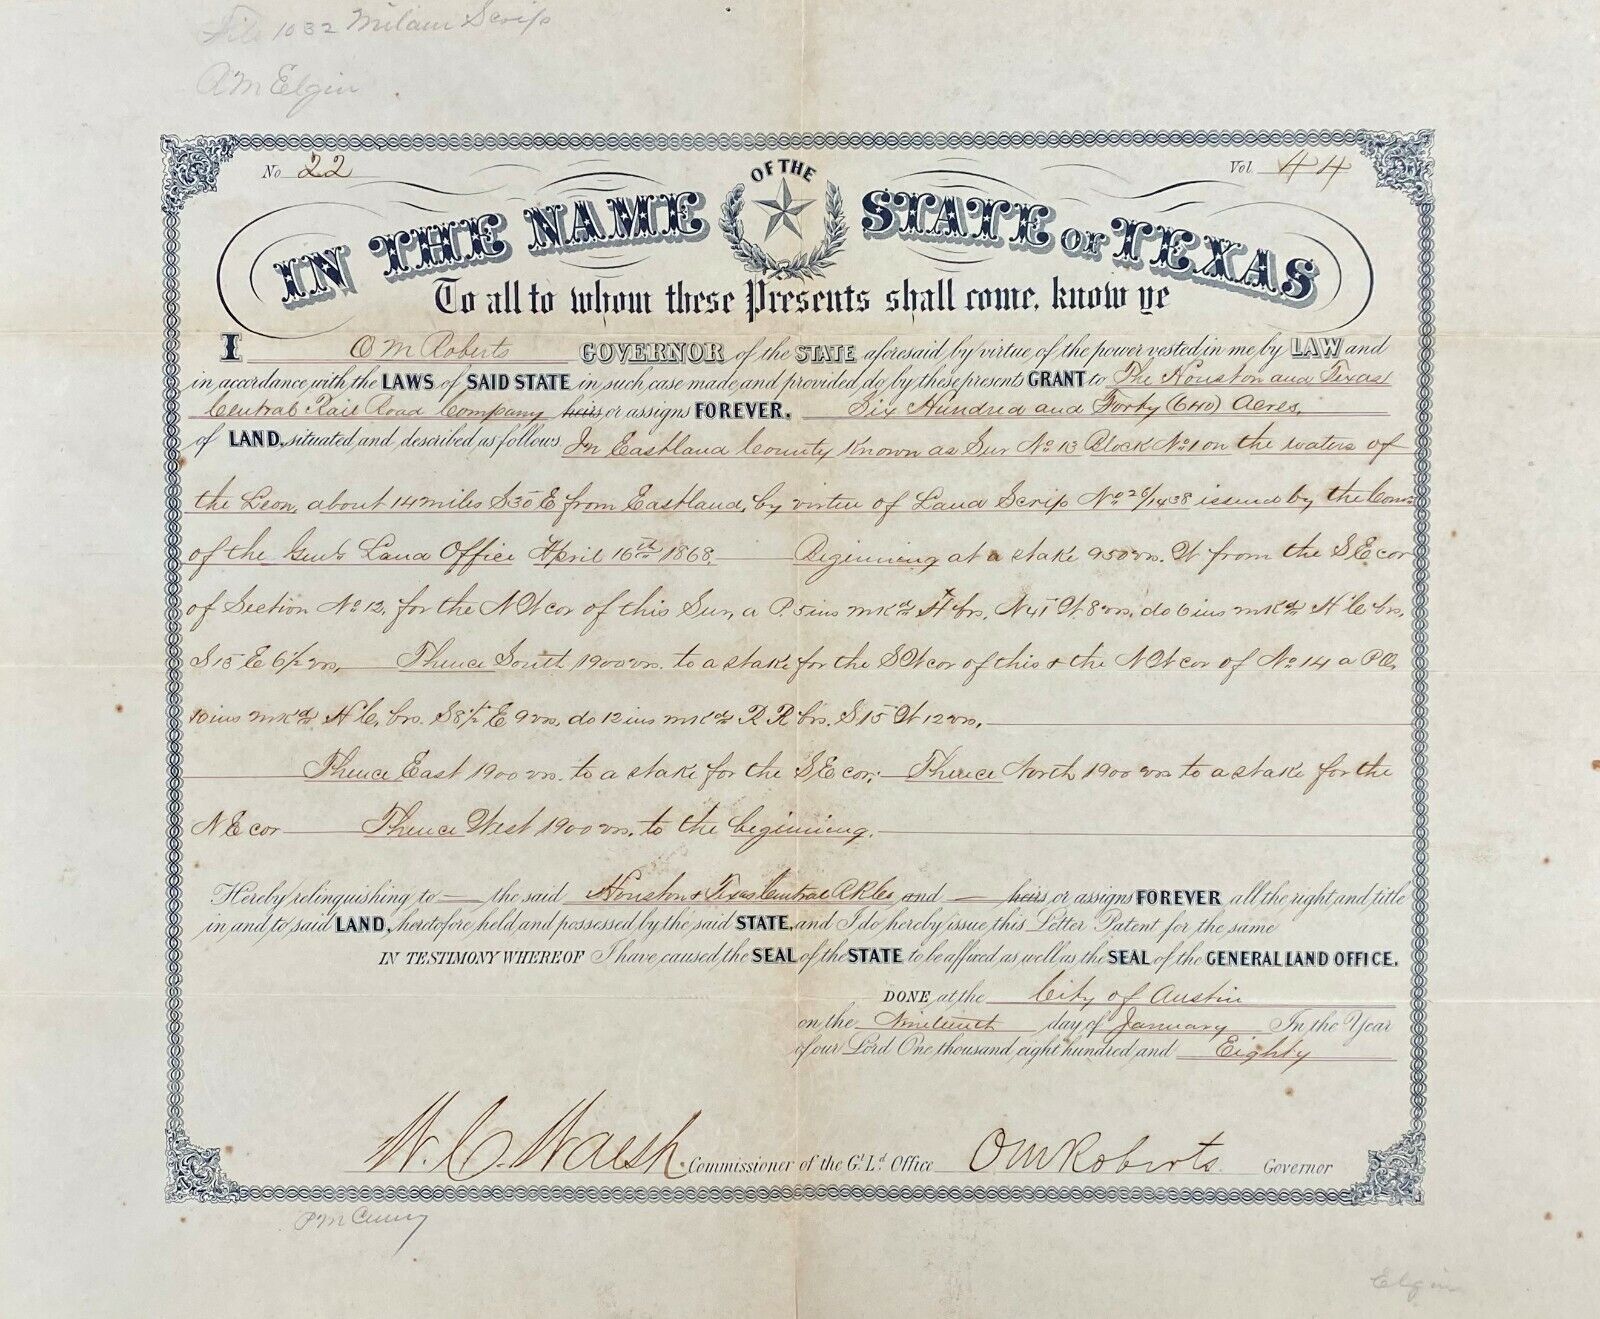 File 1032 Milam Scrip
RM Elgin
No 22
Vol. 44
IN THE NAME OF THE STATE OF TEXAS
To all to whom these Presents shall come, know ye
I O M Roberts GOVERNOR of the STATE aforesaid, by virtue of the power vested in me by LAW and
in accordance with the LAWS of SAID STATE in such case made and provided, do by these presents GRANT to The Houston and Texas
Central Rail Road Company heirs or assigns FOREVER. Six Hundred and Forty (640) Acres,
of LAND, situated and described as follows In Eastland County Known as Sur No 13 Block No 1 on the waters of
the Leon, about 14 miles S 30 E from Eastland, by virtue of Land Scrip No 26/1438 issued by the Comr
of the Genl Land Office April 16th 1868. Beginning at a stake 950 vrs. W from the S E cor
of Section No 12, for the N W cor of this Sur, a P. 5 ins mkd H brs. N 41 W. 8 vrs, do 6 ins mkd H C brs,
S 15 E 6 1/2 vrs, Thence South 1900 vrs. to a stake for the S W cor of this & the N W cor of No 14 a P O,
10 ins mkd H C, brs. S 8 1/2 E 9 vrs, do 12 ins mkd R R brs. S 15 W 12 vrs,
Thence East 1900 vrs. to a stake for the S E cor; Thence North 1900 vrs to a stake for the
N E cor Thence West 1900 vrs. to the beginning.
Hereby relinquishing to the said Houston & Texas Central R R Co and heirs or assigns FOREVER all the right and title
in and to said LAND, heretofore held and possessed by the said STATE, and I do hereby issue this Letter Patent for the same
IN TESTIMONY WHEREOF I have caused the SEAL of the STATE to be affixed as well as the SEAL of the GENERAL LAND OFFICE.
DONE at the City of Austin
on the Nineteenth day of January In the Year
of our Lord One thousand eight hundred and Eighty
W. C. Walsh. Commissioner of the Gl. Ld. Office O M Roberts Governor
Elgin